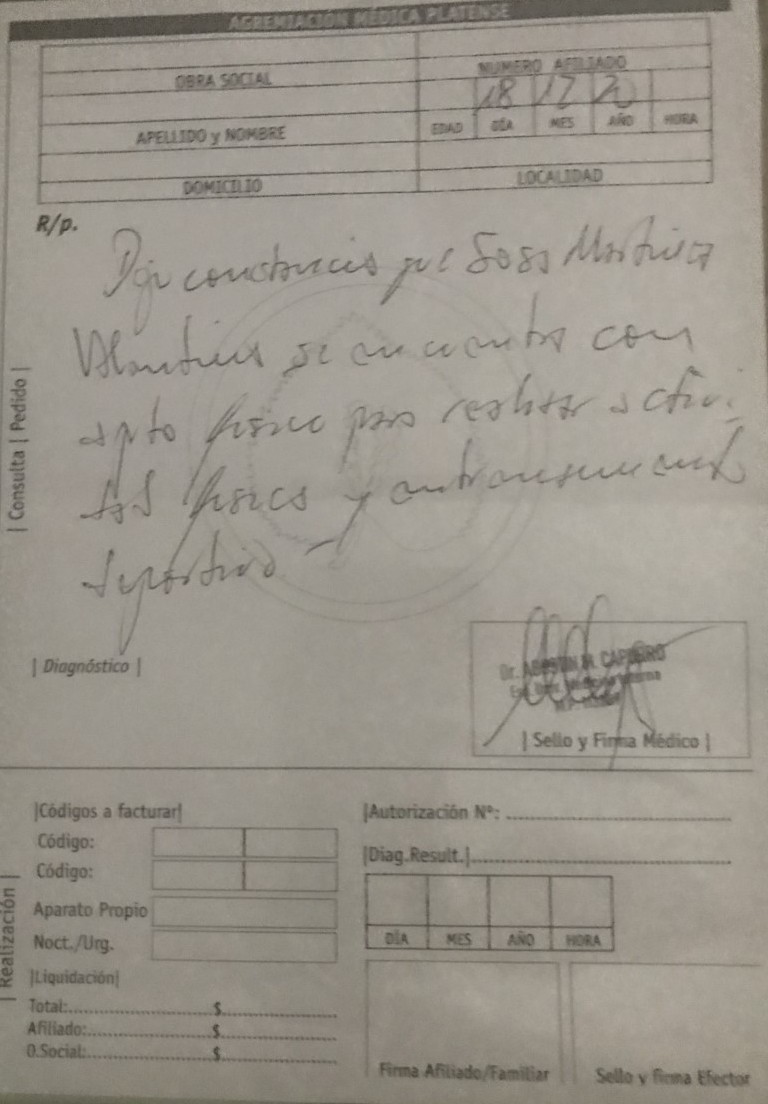 AGREMIACIÓN MÉDICA PLATENSE
OBRA SOCIAL
NUMERO AFILIADO
18 12 20
APELLIDO y NOMBRE
EDAD DÍA MES AÑO HORA
DOMICILIO
LOCALIDAD
R/p.
Dejo constancia que Sosa Martinez
Valentina se encuentra con
apto físico para realizar activi
dad física y entrenamiento
deportivo
| Consulta | Pedido |
| Diagnóstico |
Dr. M. CAP
| Sello y Firma Médico |
|Códigos a facturar|
Código:
Código:
Aparato Propio
Noct./Urg.
|Liquidación|
Total: $
Afiliado: $
O.Social: $
| Realización |
|Autorización Nº:
|Diag.Result.|
DÍA MES AÑO HORA
Firma Afiliado/Familiar
Sello y firma Efector